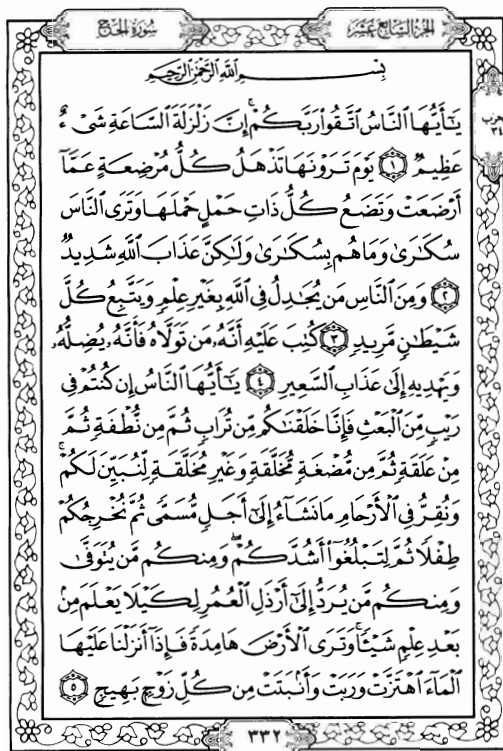 سُورَةُ الحَجِّ
الجُزْءُ السَّابِعَ عَشَرَ
٣٤
بِسْمِ ٱللَّهِ ٱلرَّحْمَٰنِ ٱلرَّحِيمِ
يَٰٓأَيُّهَا ٱلنَّاسُ ٱتَّقُوا۟ رَبَّكُمْ ۚ إِنَّ زَلْزَلَةَ ٱلسَّاعَةِ شَىْءٌ
عَظِيمٌ ١ يَوْمَ تَرَوْنَهَا تَذْهَلُ كُلُّ مُرْضِعَةٍ عَمَّآ
أَرْضَعَتْ وَتَضَعُ كُلُّ ذَاتِ حَمْلٍ حَمْلَهَا وَتَرَى ٱلنَّاسَ
سُكَٰرَىٰ وَمَا هُم بِسُكَٰرَىٰ وَلَٰكِنَّ عَذَابَ ٱللَّهِ شَدِيدٌ
٢ وَمِنَ ٱلنَّاسِ مَن يُجَٰدِلُ فِى ٱللَّهِ بِغَيْرِ عِلْمٍ وَيَتَّبِعُ كُلَّ
شَيْطَٰنٍ مَّرِيدٍ ٣ كُتِبَ عَلَيْهِ أَنَّهُۥ مَن تَوَلَّاهُ فَأَنَّهُۥ يُضِلُّهُۥ
وَيَهْدِيهِ إِلَىٰ عَذَابِ ٱلسَّعِيرِ ٤ يَٰٓأَيُّهَا ٱلنَّاسُ إِن كُنتُمْ فِى
رَيْبٍ مِّنَ ٱلْبَعْثِ فَإِنَّا خَلَقْنَٰكُم مِّن تُرَابٍ ثُمَّ مِن نُّطْفَةٍ ثُمَّ
مِنْ عَلَقَةٍ ثُمَّ مِن مُّضْغَةٍ مُّخَلَّقَةٍ وَغَيْرِ مُخَلَّقَةٍ لِّنُبَيِّنَ لَكُمْ ۚ
وَنُقِرُّ فِى ٱلْأَرْحَامِ مَا نَشَآءُ إِلَىٰٓ أَجَلٍ مُّسَمًّى ثُمَّ نُخْرِجُكُمْ
طِفْلًا ثُمَّ لِتَبْلُغُوٓا۟ أَشُدَّكُمْ ۖ وَمِنكُم مَّن يُتَوَفَّىٰ
وَمِنكُم مَّن يُرَدُّ إِلَىٰٓ أَرْذَلِ ٱلْعُمُرِ لِكَيْلَا يَعْلَمَ مِنۢ
بَعْدِ عِلْمٍ شَيْـًٔا ۚ وَتَرَى ٱلْأَرْضَ هَامِدَةً فَإِذَآ أَنزَلْنَا عَلَيْهَا
ٱلْمَآءَ ٱهْتَزَّتْ وَرَبَتْ وَأَنۢبَتَتْ مِن كُلِّ زَوْجٍۭ بَهِيجٍ ٥
٣٣٢